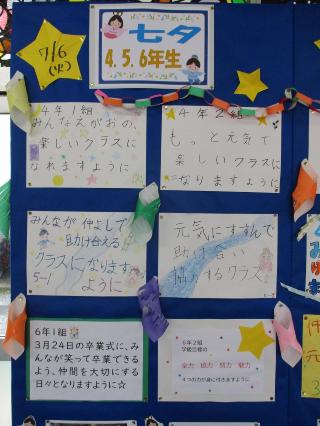 7/6
(火)
七夕
4.5.6年生
4年1組
みんなえがおの、
楽しいクラスに
なれますように
4年2組
もっと元気で
楽しいクラスに
なりますように
みんなが仲よしで
助け合える
クラスになります
ように
5-1
元気にすすんで
助け合い
協力するクラス。
6年1組
3月24日の卒業式に、み
んなが笑って卒業できる
よう、仲間を大切にする
日々となりますように☆
6年2組
学級目標の
全力 協力 努力 魅力
4つの力が身に付きますように